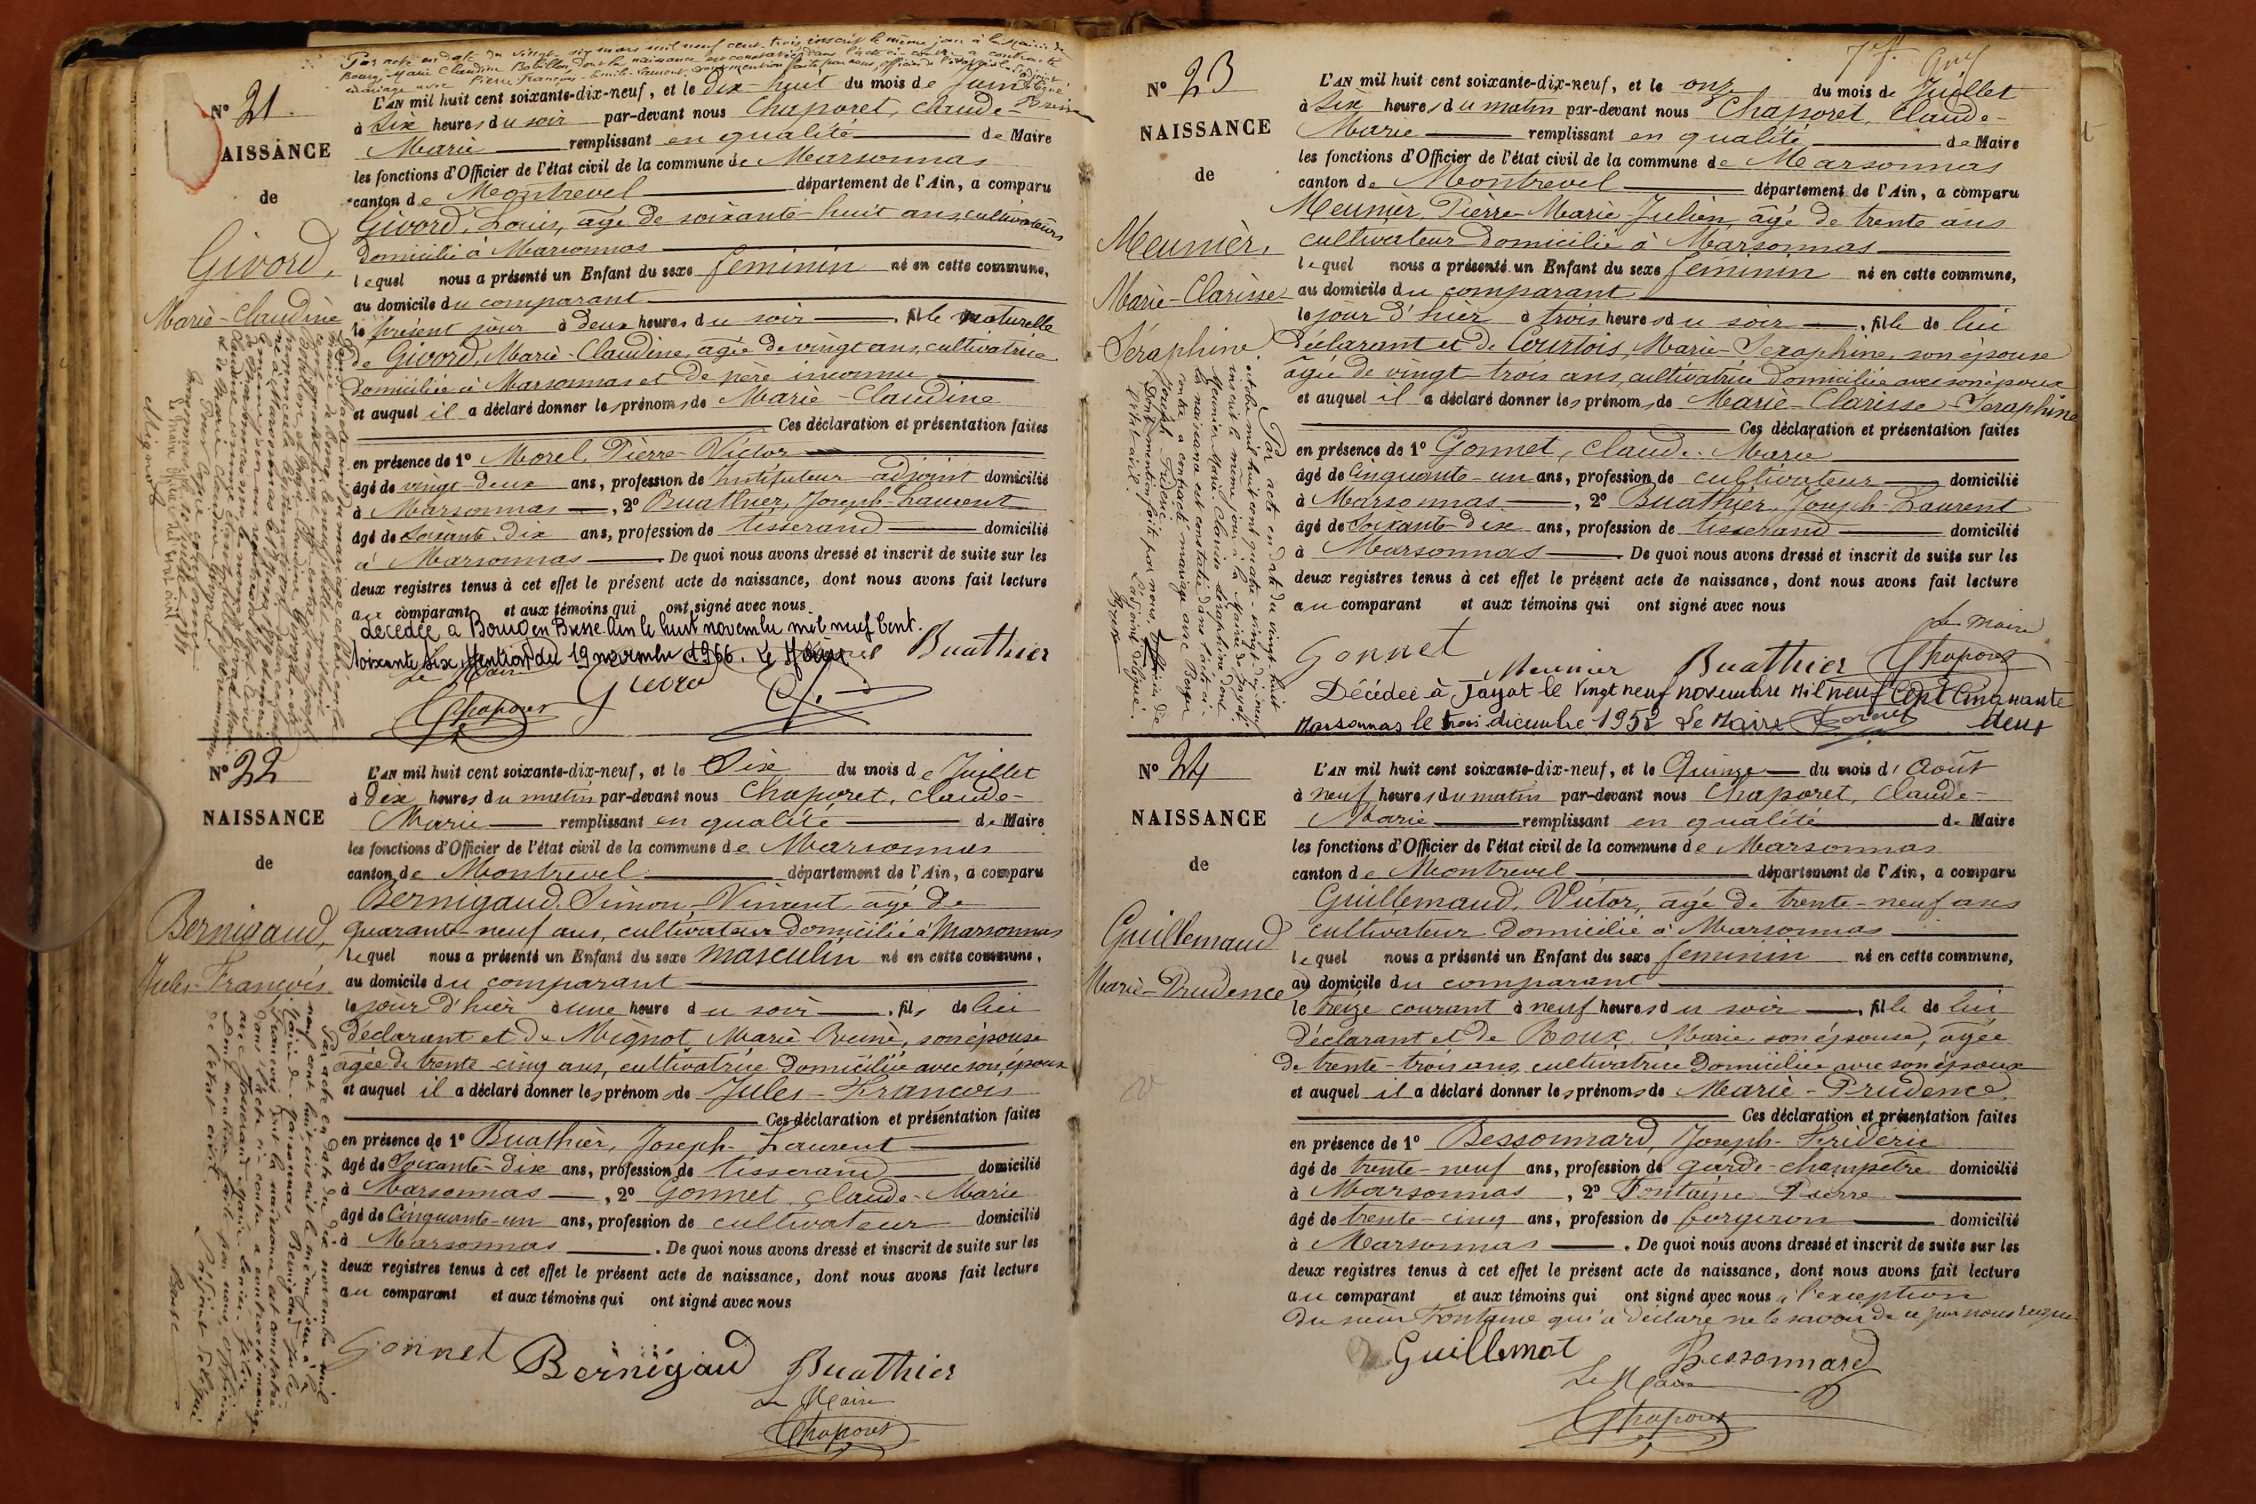 Par acte en date du vingt six mars mil neuf cent trois inscrit le même jour à la Mairie de
Bourg, Marie Claudine Bolillon, dont la naissance est constatée dans l'acte ci-contre a contracté
mariage avec
N° 21
AISSANCE
de
Givord,
Marie-Claudine
L'AN mil huit cent soixante-dix-neuf, et le dix-huit du mois de Juin
à Six heures du soir par-devant nous Chaporet, Claude-
Marie remplissant en qualité de Maire
les fonctions d'Officier de l'état civil de la commune de Marsonnas
canton de Montrevel département de l'Ain, a comparu
Givord, Louis, âgé de soixante-huit ans, cultivateur
domicilié à Marsonnas
lequel nous a présenté un Enfant du sexe féminin né en cette commune,
au domicile du comparant
le présent jour à deux heures du soir, fille naturelle
de Givord, Marie-Claudine, âgée de vingt ans, cultivatrice
domiciliée à Marsonnas et de père inconnu
et auquel il a déclaré donner les prénoms de Marie-Claudine
Ces déclaration et présentation faites
en présence de 1° Morel, Pierre-Victor
âgé de vingt-deux ans, profession de Instituteur-adjoint domicilié
à Marsonnas, 2° Buathier, Joseph-Laurent
âgé de soixante-dix ans, profession de tisserand domicilié
à Marsonnas. De quoi nous avons dressé et inscrit de suite sur les
deux registres tenus à cet effet le présent acte de naissance, dont nous avons fait lecture
au comparant et aux témoins qui ont signé avec nous.
décédée à Bourg en Bresse Ain le huit novembre mil neuf cent
soixante six. Mention du 19 novembre 1966. Le Maire
Buathier
Le Maire
Chaporet
Mignot
N° 22
NAISSANCE
de
Bernigaud,
Jules-François
L'AN mil huit cent soixante-dix-neuf, et le Six du mois de Juillet
à dix heures du matin par-devant nous Chaporet, Claude-
Marie remplissant en qualité de Maire
les fonctions d'Officier de l'état civil de la commune de Marsonnas
canton de Montrevel département de l'Ain, a comparu
Bernigaud, Simon-Vincent, âgé de
quarante-neuf ans, cultivateur domicilié à Marsonnas
lequel nous a présenté un Enfant du sexe masculin né en cette commune,
au domicile du comparant
le jour d'hier à une heure du soir, fils de lui
déclarant et de Mignot, Marie-Reine, son épouse
âgée de trente-cinq ans, cultivatrice domiciliée avec son époux
et auquel il a déclaré donner les prénoms de Jules-François
Ces déclaration et présentation faites
en présence de 1° Buathier, Joseph-Laurent
âgé de Soixante-dix ans, profession de tisserand domicilié
à Marsonnas, 2° Gonnet, Claude-Marie
âgé de Cinquante-un ans, profession de cultivateur domicilié
à Marsonnas. De quoi nous avons dressé et inscrit de suite sur les
deux registres tenus à cet effet le présent acte de naissance, dont nous avons fait lecture
au comparant et aux témoins qui ont signé avec nous
Gonnet Bernigaud Buathier
Le Maire
Chaporet
Par acte en date du dix novembre mil
neuf cent huit, inscrit le même jour à la
Mairie de Marsonnas Bernigaud Jules-
François dont la naissance est constatée
dans l'acte ci-contre a contracté mariage
dont mention faite par nous, officier
de l'état civil.
N° 23
NAISSANCE
de
Meunier,
Marie-Clarisse-
Séraphine.
L'AN mil huit cent soixante-dix-neuf, et le onze du mois de Juillet
à Six heures du matin par-devant nous Chaporet, Claude-
Marie remplissant en qualité de Maire
les fonctions d'Officier de l'état civil de la commune de Marsonnas
canton de Montrevel département de l'Ain, a comparu
Meunier, Pierre-Marie-Julien, âgé de trente ans
cultivateur domicilié à Marsonnas
lequel nous a présenté un Enfant du sexe féminin né en cette commune,
au domicile du comparant
le jour d'hier à trois heures du soir, fille de lui
déclarant et de Courtois, Marie-Séraphine, son épouse
âgée de vingt-trois ans, cultivatrice domiciliée avec son époux
et auquel il a déclaré donner les prénoms de Marie-Clarisse-Séraphine
Ces déclaration et présentation faites
en présence de 1° Gonnet, Claude-Marie
âgé de Cinquante-un ans, profession de cultivateur domicilié
à Marsonnas, 2° Buathier, Joseph-Laurent
âgé de Soixante-dix ans, profession de tisserand domicilié
à Marsonnas. De quoi nous avons dressé et inscrit de suite sur les
deux registres tenus à cet effet le présent acte de naissance, dont nous avons fait lecture
au comparant et aux témoins qui ont signé avec nous
Le Maire
Gonnet Meunier Buathier Chaporet
Décédée à Jayat le vingt neuf novembre mil neuf cent cinquante
deux
Marsonnas le trois décembre 1952 Le Maire
Par acte en date du vingt-huit
octobre mil huit cent quatre-vingt-dix-neuf
inscrit le même jour à la Mairie de Jayat
Meunier Marie-Clarisse-Séraphine dont
la naissance est constatée dans l'acte ci-
contre, a contracté mariage avec Berger
dont mention faite par nous, officier de
l'état civil.
N° 24
NAISSANCE
de
Guillemaud
Marie-Prudence
L'AN mil huit cent soixante-dix-neuf, et le Quinze du mois d'Août
à neuf heures du matin par-devant nous Chaporet, Claude-
Marie remplissant en qualité de Maire
les fonctions d'Officier de l'état civil de la commune de Marsonnas
canton de Montrevel département de l'Ain, a comparu
Guillemaud, Victor, âgé de trente-neuf ans
cultivateur domicilié à Marsonnas
lequel nous a présenté un Enfant du sexe féminin né en cette commune,
au domicile du comparant
le treize courant à neuf heures du soir, fille de lui
déclarant et de Roux, Marie son épouse, âgée
de trente-trois ans, cultivatrice domiciliée avec son époux
et auquel il a déclaré donner les prénoms de Marie-Prudence
Ces déclaration et présentation faites
en présence de 1° Bessonnard, Joseph-Frideric
âgé de trente-neuf ans, profession de garde-champêtre domicilié
à Marsonnas, 2° Fontaine Pierre
âgé de trente-cinq ans, profession de forgeron domicilié
à Marsonnas. De quoi nous avons dressé et inscrit de suite sur les
deux registres tenus à cet effet le présent acte de naissance, dont nous avons fait lecture
au comparant et aux témoins qui ont signé avec nous à l'exception
du sieur Fontaine qui a déclaré ne le savoir de ce par nous requis
Guillemot Bessonnard
Le Maire
Chaporet